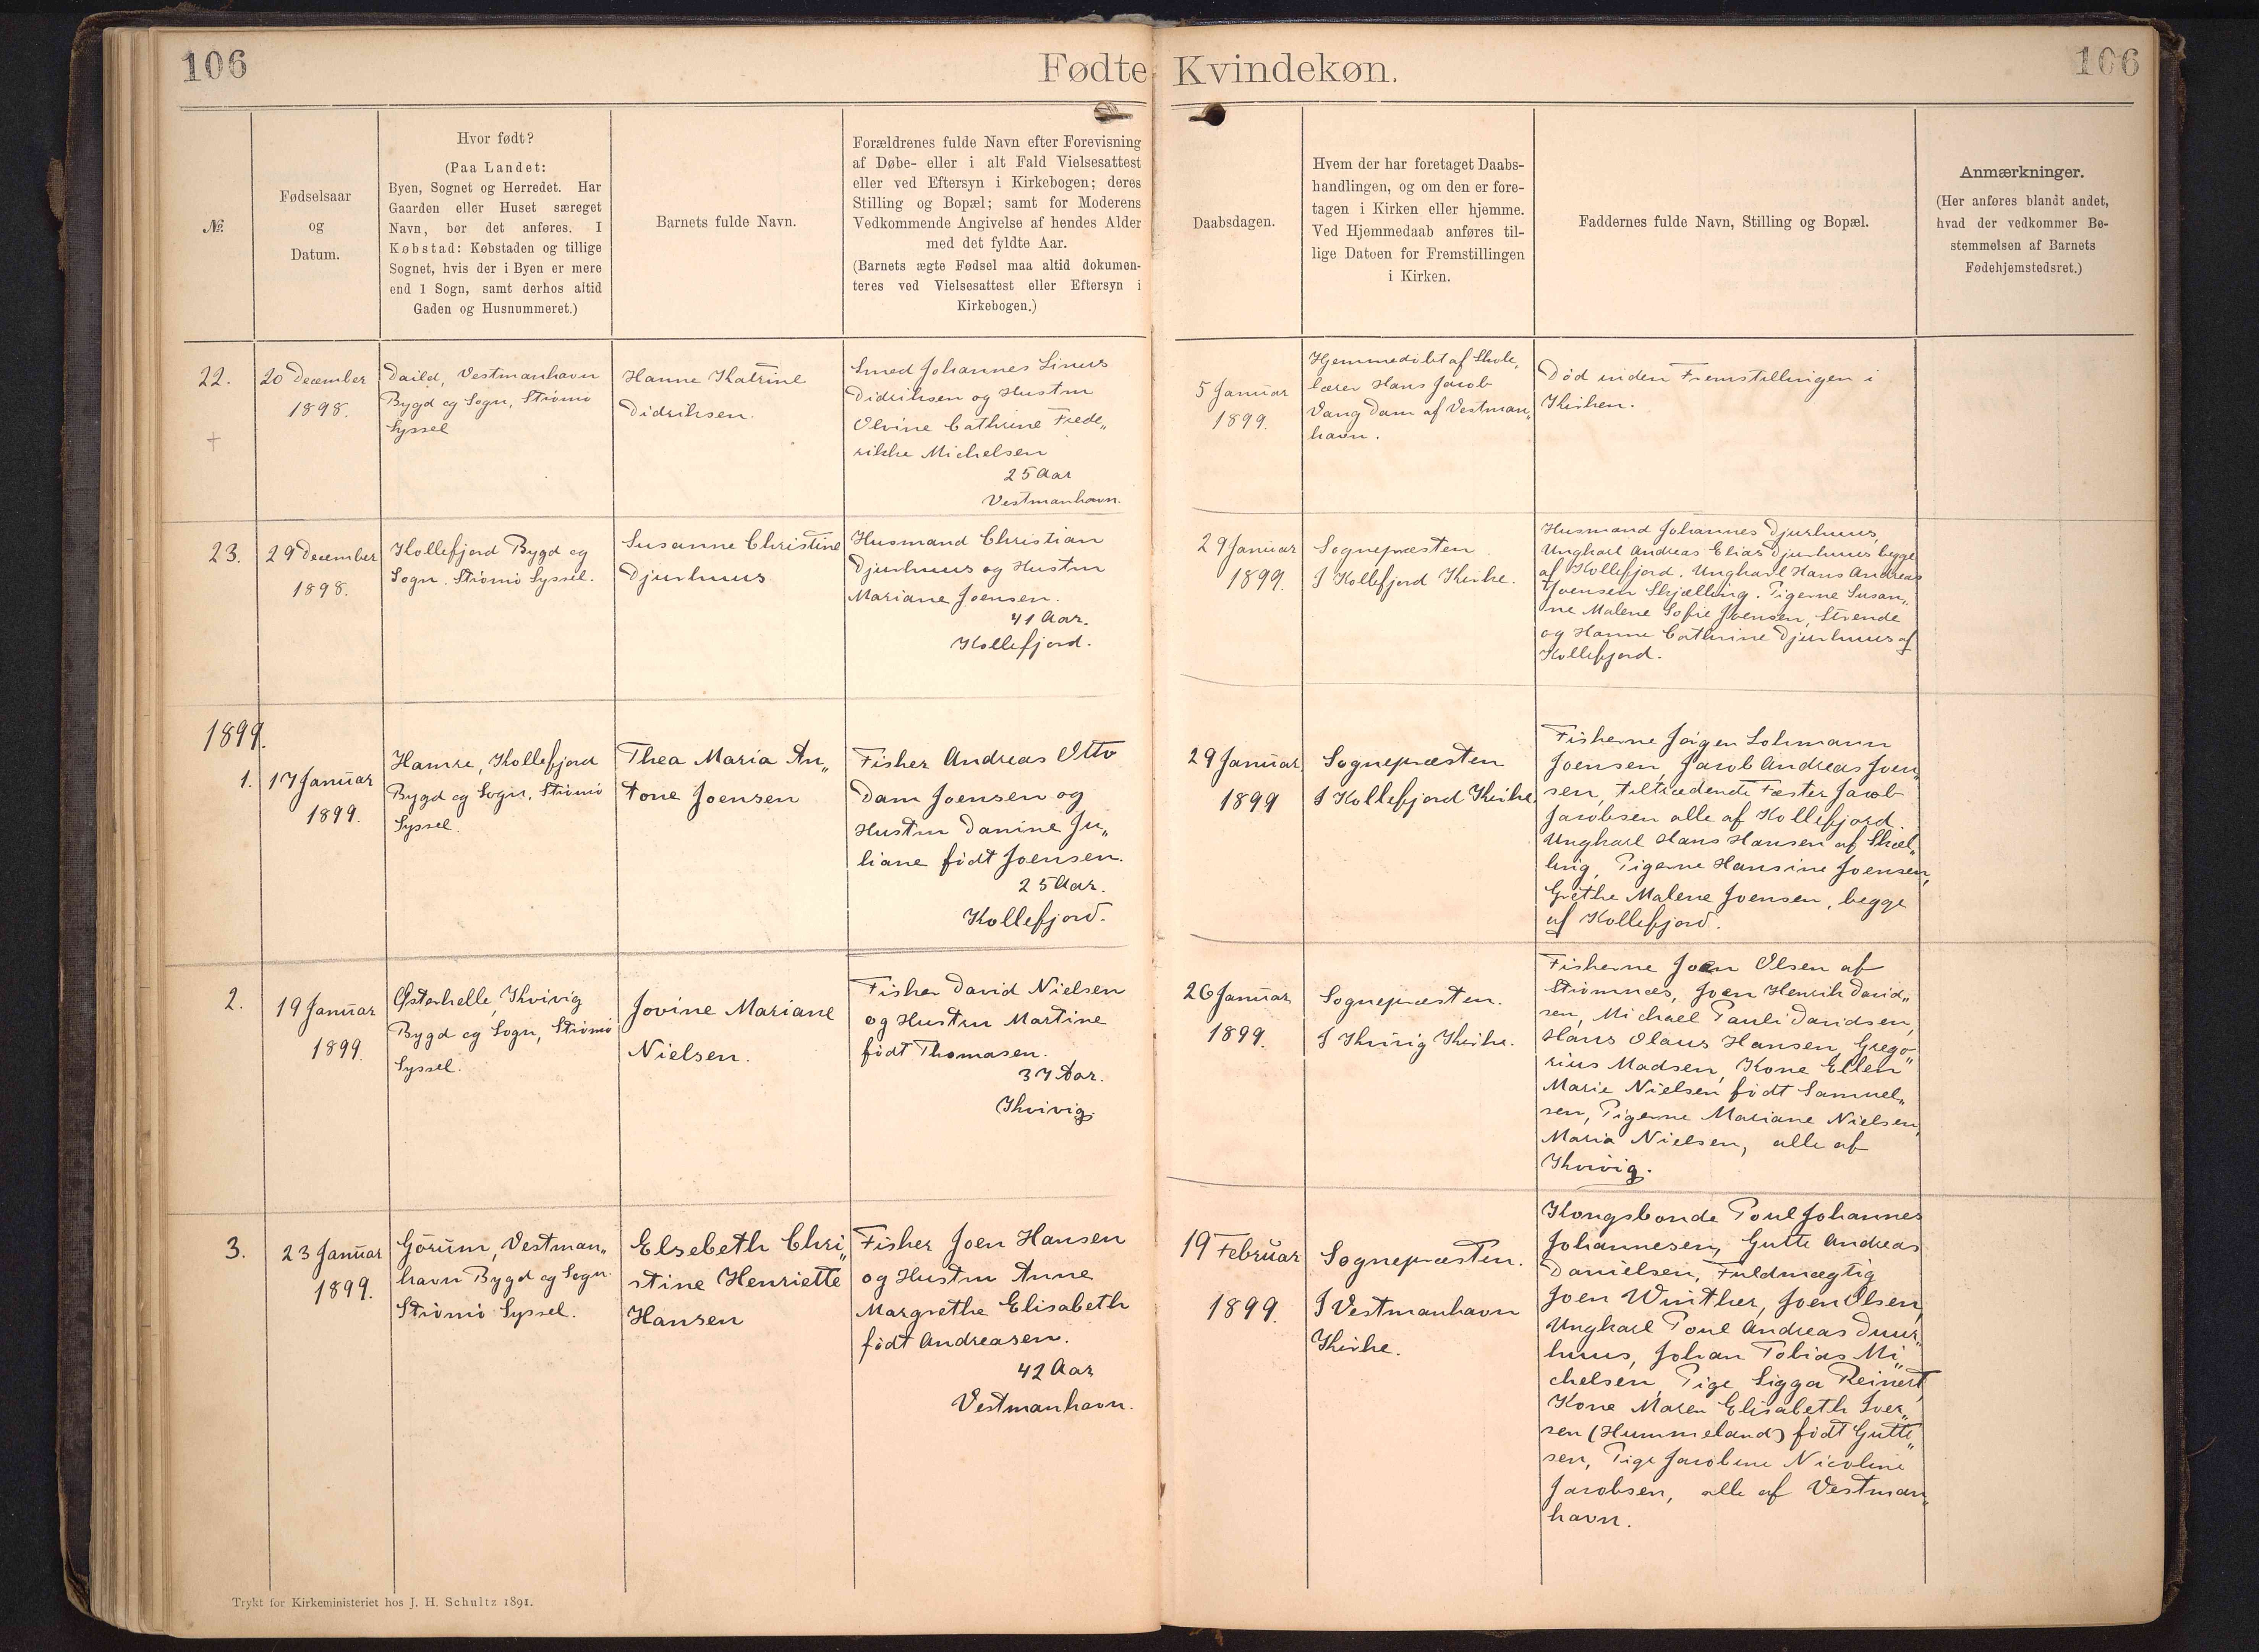 106
Fødte Kvindekøn.
106
№
Fødselsaar
og
Datum.
Hvor født?
(Paa Landet:
Byen, Sognet og Herredet. Har
Gaarden eller Huset særeget
Navn, bør det anføres. I
Købstad: Købstaden og tillige
Sognet, hvis der i Byen er mere
end 1 Sogn, samt derhos altid
Gaden og Husnummeret.)
Barnets fulde Navn.
Forældrenes fulde Navn efter Forevisning
af Døbe- eller i alt Fald Vielsesattest
eller ved Eftersyn i Kirkebogen; deres
Stilling og Bopæl; samt for Moderens
Vedkommende Angivelse af hendes Alder
med det fyldte Aar.
(Barnets ægte Fødsel maa altid dokumen-
teres ved Vielsesattest eller Eftersyn i
Kirkebogen.)
Daabsdagen.
Hvem der har foretaget Daabs-
handlingen, og om den er fore-
tagen i Kirken eller hjemme.
Ved Hjemmedaab anføres til-
lige Datoen for Fremstillingen
i Kirken.
Faddernes fulde Navn, Stilling og Bopæl.
Anmærkninger.
(Her anføres blandt andet,
hvad der vedkommer Be-
stemmelsen af Barnets
Fødehjemstedsret.)
22.
+
20 December
1898.
Daild, Vestmanhavn
Bygd og Sogn, Strömö
Syssel
Hanne Katrine
Didriksen.
Smed Johannes Linus
Didriksen og Hustru
Olvine Cathrine Frede„
rikke Michelsen
25 Aar
Vestmanhavn.
5 Januar
1899.
Hjemmedöbt af Skole„
lærer Hans Jacob
Vang Dam af Vestman„
havn.
Död inden Fremstillingen i
Kirken.
23.
29 December
1898.
Kollefjord Bygd og
Sogn. Strömö Syssel.
Susanne Christine
Djurhuus
Husmand Christian
Djurhuus og Hustru
Mariane Joensen.
41 Aar.
Kollefjord.
29 Januar
1899.
Sognepræsten
I Kollefjord Kirke.
Husmand Johannes Djurhuus,
Ungkarl Andreas Elias Djurhuus begge
af Kollefjord. Ungkarl Hans Andreas
Joensen Skjælling. Pigerne Susan„
ne Malene Sofie Joensen, Strende
og Hanne Cathrine Djurhuus af
Kollefjord.
1899.
1.
17 Januar
1899.
Hamre, Kollefjord
Bygd og Sogn, Strömö
Syssel.
Thea Maria An„
tone Joensen
Fisker Andreas Otto
Dam Joensen og
Hustru Danine Ju„
liane födt Joensen.
25 Aar.
Kollefjord.
29 Januar
1899
Sognepræsten
I Kollefjord Kirke.
Fiskerne Jörgen Lohmann
Joensen, Jacob Andreas Joen„
sen, tiltrædende Fæster Jacob
Jacobsen alle af Kollefjord.
Ungkarl Hans Hansen af Skæl„
ling, Pigerne Hansine Joensen,
Grethe Malene Joensen, begge
af Kollefjord.
2.
19 Januar
1899.
Østerhelle, Kvivig
Bygd og Sogn, Strömö
Syssel.
Jovine Mariane
Nielsen.
Fisker David Nielsen
og Hustru Martine
födt Thomasen.
37 Aar.
Kvivig.
26 Januar
1899.
Sognepræsten.
I Kvivig Kirke.
Fiskerne Joen Olsen af
Strömnæs, Joen Henrik David„
sen, Michael Pauli Davidsen,
Hans Olaus Hansen, Grego„
rius Madsen, Kone Ellen
Marie Nielsen födt Samuel„
sen, Pigerne Mariane Nielsen,
Maria Nielsen, alle af
Kvivig.
3.
23 Januar
1899.
Görum, Vestman„
havn Bygd og Sogn.
Strömö Syssel.
Elsebeth Chri„
stine Henriette
Hansen
Fisker Joen Hansen
og Hustru Anne
Margrethe Elisabeth
födt Andreasen.
42 Aar
Vestmanhavn.
19 Februar
1899.
Sognepræsten.
I Vestmanhavn
Kirke.
Kongsbonde Poul Johannes
Johannesen, Gutte Andreas
Danielsen, Fuldmægtig
Joen Winther, Joen Olsen,
Ungkarl Poul Andreas Duur„
huus, Johan Tobias Mi„
chelsen, Pige Sigga Reinert,
Kone Maren Elisabeth Iver„
sen (Hummeland) födt Gutte„
sen, Pige Jacobine Nicoline
Jacobsen, alle af Vestman„
havn.
Trykt for Kirkeministeriet hos J. H. Schultz 1891.